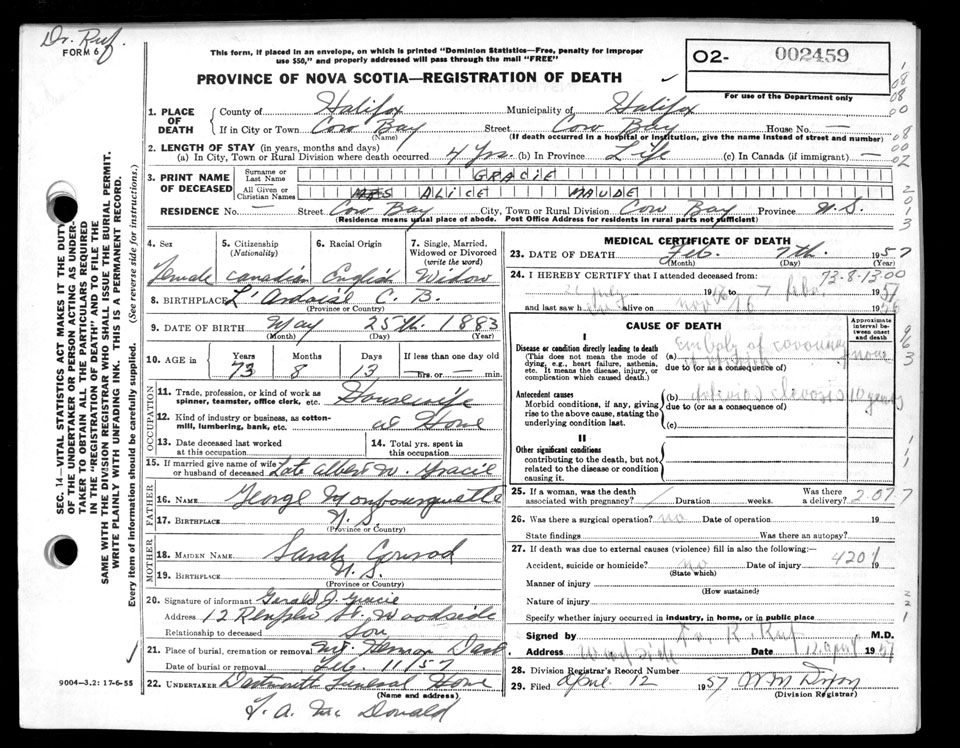 Dr. Ruf.
FORM 6
This form, if placed in an envelope, on which is printed "Dominion Statistics—Free, penalty for improper
use $50," and properly addressed will pass through the mail "FREE"
PROVINCE OF NOVA SCOTIA—REGISTRATION OF DEATH
O2- 002459
For use of the Department only
1. PLACE OF DEATH
County of Halifax Municipality of Halifax
If in City or Town Cow Bay Street Cow Bay House No. —
(Name) (If death occurred in a hospital or institution, give the name instead of street and number)
2. LENGTH OF STAY (in years, months and days)
(a) In City, Town or Rural Division where death occurred 4 Yrs. (b) In Province Life (c) In Canada (if immigrant) —
3. PRINT NAME OF DECEASED
Surname or Last Name GRACIE
All Given or Christian Names MRS ALICE MAUDE
RESIDENCE No. — Street Cow Bay City, Town or Rural Division Cow Bay Province N.S.
(Residence means usual place of abode. Post Office Address for residents in rural parts not sufficient)
4. Sex
Female
5. Citizenship (Nationality)
Canadian
6. Racial Origin
English
7. Single, Married, Widowed or Divorced (write the word)
Widow
8. BIRTHPLACE L'Ardoise C. B.
9. DATE OF BIRTH May 25th. 1883
(Month) (Day) (Year)
10. AGE in Years Months Days If less than one day
73 8 13 — hrs. or — min.
OCCUPATION
11. Trade, profession, or kind of work as spinner, teamster, office clerk, etc. Housewife
12. Kind of industry or business, as cotton-mill, lumbering, bank, etc. at Home
13. Date deceased last worked at this occupation
14. Total yrs. spent in this occupation
15. If married give name of wife or husband of deceased Late Albert W. Gracie
FATHER
16. NAME George Monbourquette
17. BIRTHPLACE N. S.
(Province or Country)
MOTHER
18. MAIDEN NAME Sarah
19. BIRTHPLACE N. S.
(Province or Country)
20. Signature of informant Gerald J. Gracie
Address 12 Renfrew St. Woodside
Relationship to deceased Son
21. Place of burial, cremation or removal Mt. Hermon Dart
Date of burial or removal Feb. 11/57
22. UNDERTAKER Dartmouth Funeral Home
(Name and address)
T. A. Mc Donald
9004—3.2: 17-6-55
MEDICAL CERTIFICATE OF DEATH
23. DATE OF DEATH Feb. 7th. 1957
(Month) (Day) (Year)
73-8-1300
24. I HEREBY CERTIFY that I attended deceased from:
July 19 to 7 Febr. 1957
and last saw h alive on Nov 16 1956
CAUSE OF DEATH
Approximate interval between onset and death
I
Disease or condition directly leading to death
(This does not mean the mode of dying, e.g., heart failure, asthenia, etc. It means the disease, injury, or complication which caused death.)
(a) Emboly of coronary
due to (or as a consequence of)
Antecedent causes
Morbid conditions, if any, giving rise to the above cause, stating the underlying condition last.
(b) 10 years
due to (or as a consequence of)
(c)
II
Other significant conditions
contributing to the death, but not related to the disease or condition causing it.
25. If a woman, was the death associated with pregnancy? / Duration weeks. Was there a delivery? 2.077
26. Was there a surgical operation? no Date of operation 19
State findings Was there an autopsy?
27. If death was due to external causes (violence) fill in also the following:—
Accident, suicide or homicide? no Date of injury 19
4201
(State which)
Manner of injury
(How sustained)
Nature of injury
Specify whether injury occurred in industry, in home, or in public place
Signed by Dr. R. Ruf M.D.
Address Woodside Date 12 April 1957
28. Division Registrar's Record Number
29. Filed April 12 1957
(Division Registrar)
SEC. 14—VITAL STATISTICS ACT MAKES IT THE DUTY
OF THE UNDERTAKER OR PERSON ACTING AS UNDER-
TAKER TO OBTAIN ALL THE PARTICULARS REQUIRED
IN THE "REGISTRATION OF DEATH" AND TO FILE THE
SAME WITH THE DIVISION REGISTRAR WHO SHALL ISSUE THE BURIAL PERMIT.
WRITE PLAINLY WITH UNFADING INK. THIS IS A PERMANENT RECORD.
Every item of information should be carefully supplied. (See reverse side for instructions.)